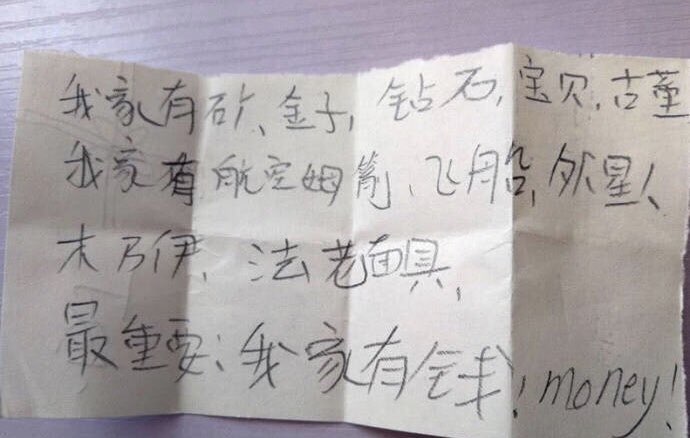 我家有矿、金子，钻石，宝贝，古董
我家有航空姆舰、飞船，外星人
木乃伊，法老面具，
最重要：我家有钱！money！